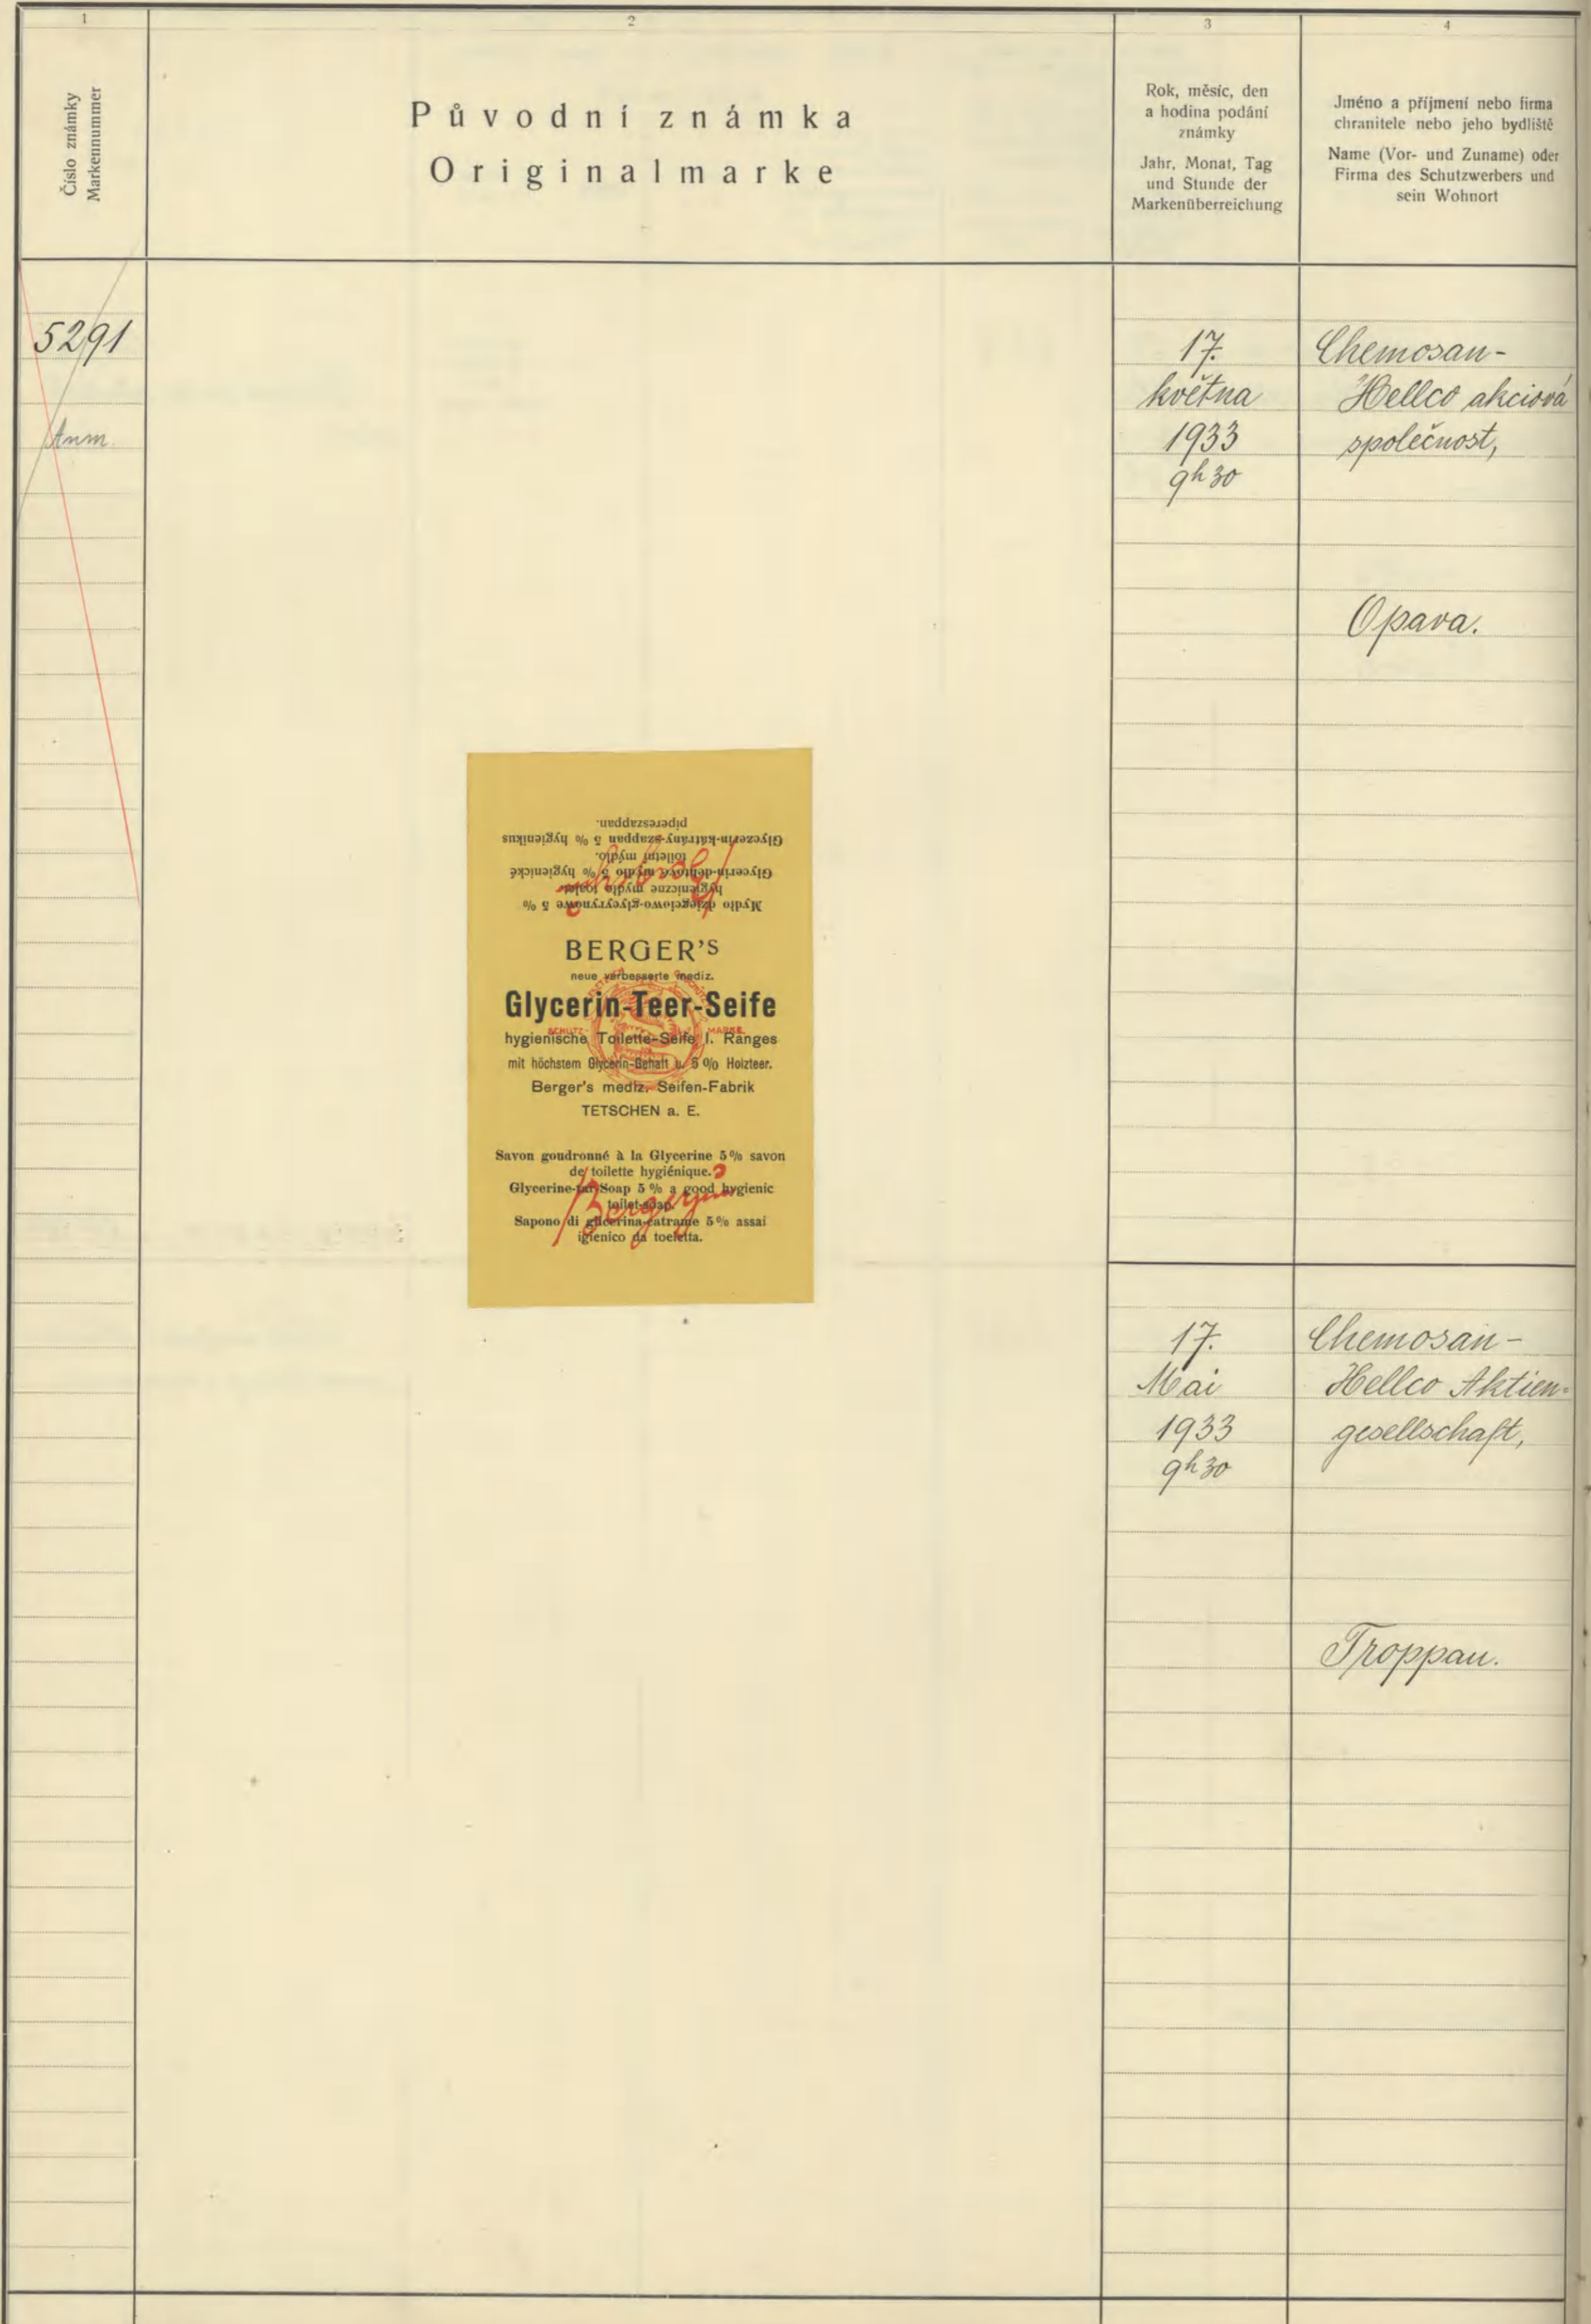 1
2
3
4
Číslo známky
Markennummer
Původní známka
Originalmarke
Rok, měsíc, den
a hodina podání
známky
Jahr, Monat, Tag
und Stunde der
Markenüberreichung
Jméno a příjmení nebo firma
chranitele nebo jeho bydliště
Name (Vor- und Zuname) oder
Firma des Schutzwerbers und
sein Wohnort
5291
Anm.
17.
května
1933
9h30
Chemosan-
Hellco akciová
společnost,
Opava.
Mydło dziegciowo-glycerynowe 5 %
hygieniczne mydło
Glycerin-dehtové mýdlo 5 % hygienické
toiletní mýdlo.
Glyczerin-kátrány-szappan 5 % hygienikus
pipereszappan.
BERGER'S
neue verbesserte mediz.
Glycerin-Teer-Seife
SCHUTZ- MARKE
hygienische Toilette-Seife I. Ranges
mit höchstem Glycerin-Gehalt u. 5 % Holzteer.
Berger's mediz. Seifen-Fabrik
TETSCHEN a. E.
Savon goudronné à la Glycerine 5 % savon
de toilette hygiénique.
Glycerine-tar-Soap 5 % a good hygienic
toilet-soap.
Sapono di glicerina-catrame 5 % assai
igienico da toeletta.
17.
Mai
1933
9h30
Chemosan-
Hellco Aktien-
gesellschaft,
Troppau.